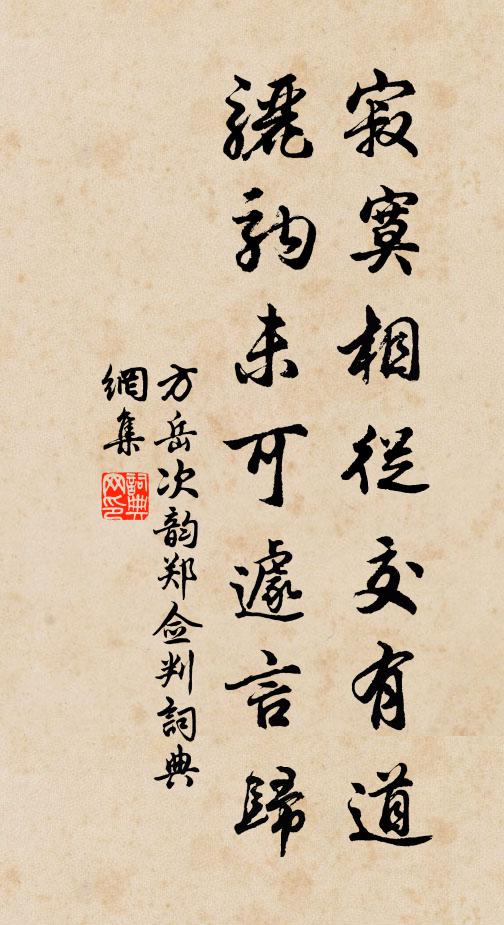 寂寞相從交有道
驪駒未可遽言歸
方岳次韵郑佥判詞典
網集
詞典网印